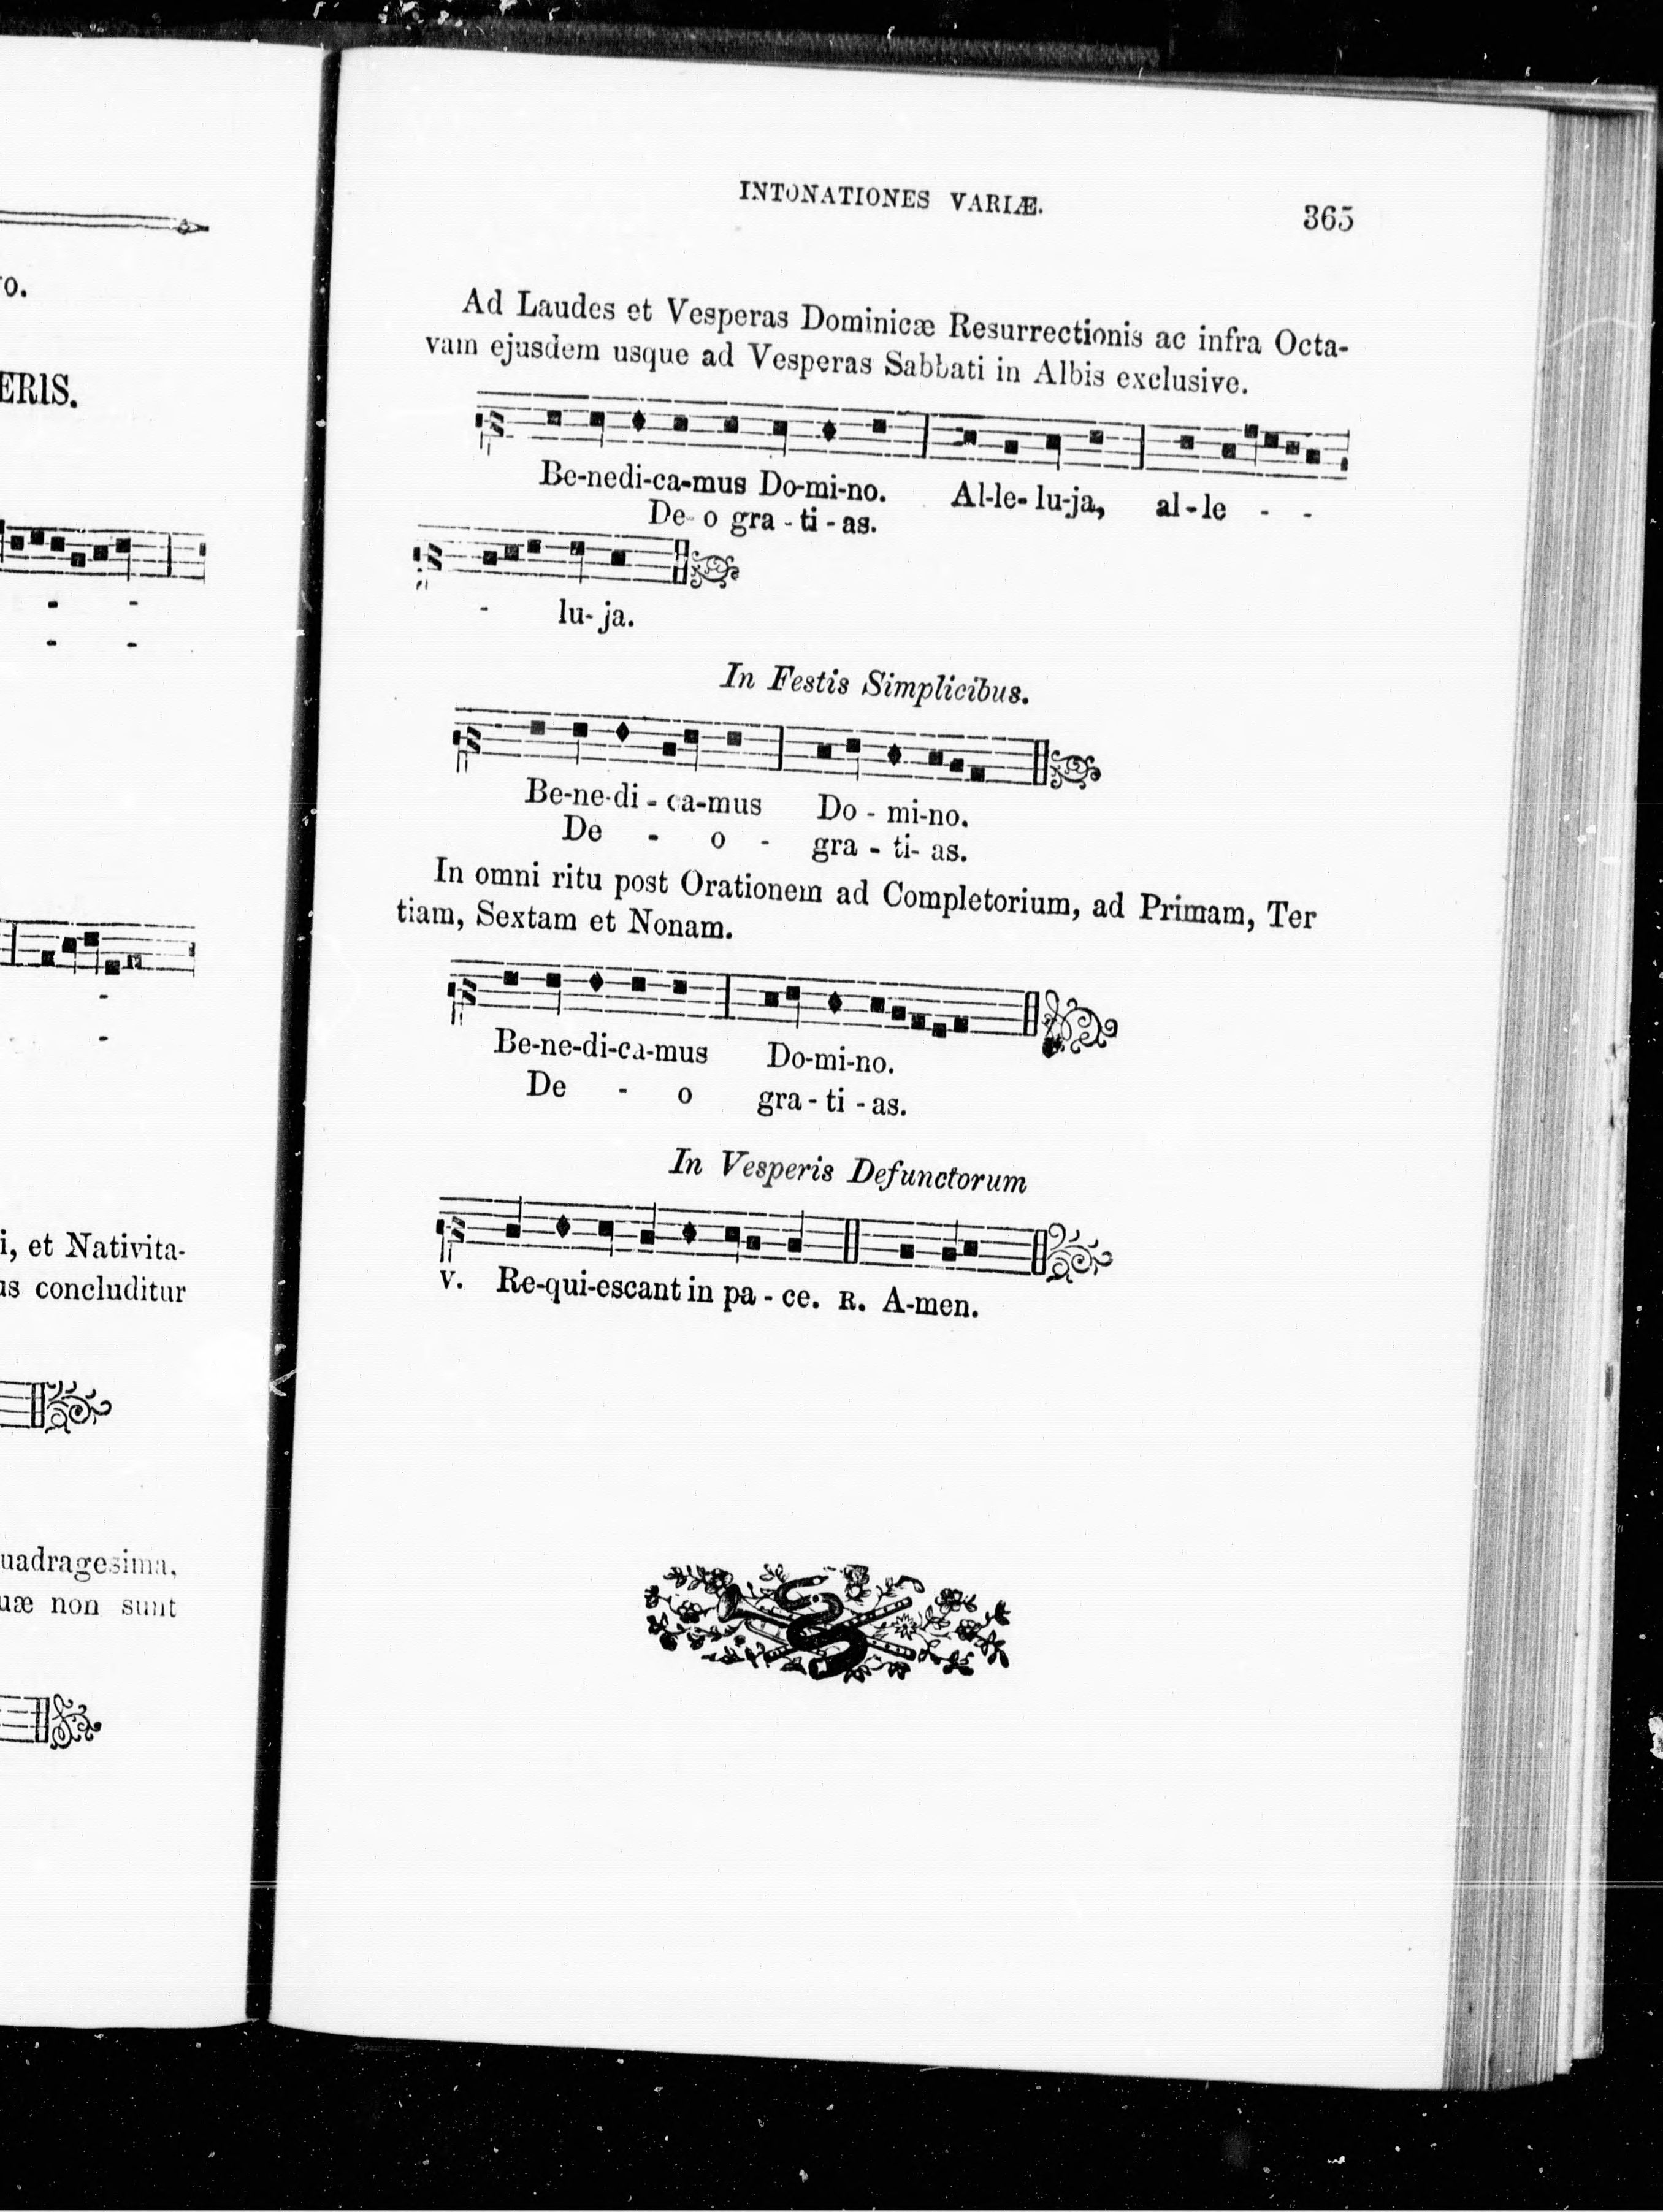 o.
ERIS.
- -
- -
-
-
i, et Nativita-
us concluditur
uadragesima,
uæ non sunt
INTONATIONES VARIÆ.
365
Ad Laudes et Vesperas Dominicæ Resurrectionis ac infra Octa-
vam ejusdem usque ad Vesperas Sabbati in Albis exclusive.
Be-nedi-ca-mus Do-mi-no. Al-le-lu-ja, al-le - -
De-o gra-ti-as.
- lu-ja.
In Festis Simplicibus.
Be-ne-di-ca-mus Do-mi-no.
De - o - gra-ti-as.
In omni ritu post Orationem ad Completorium, ad Primam, Ter
tiam, Sextam et Nonam.
Be-ne-di-ca-mus Do-mi-no.
De - o gra-ti-as.
In Vesperis Defunctorum
V. Re-qui-escant in pa-ce. R. A-men.